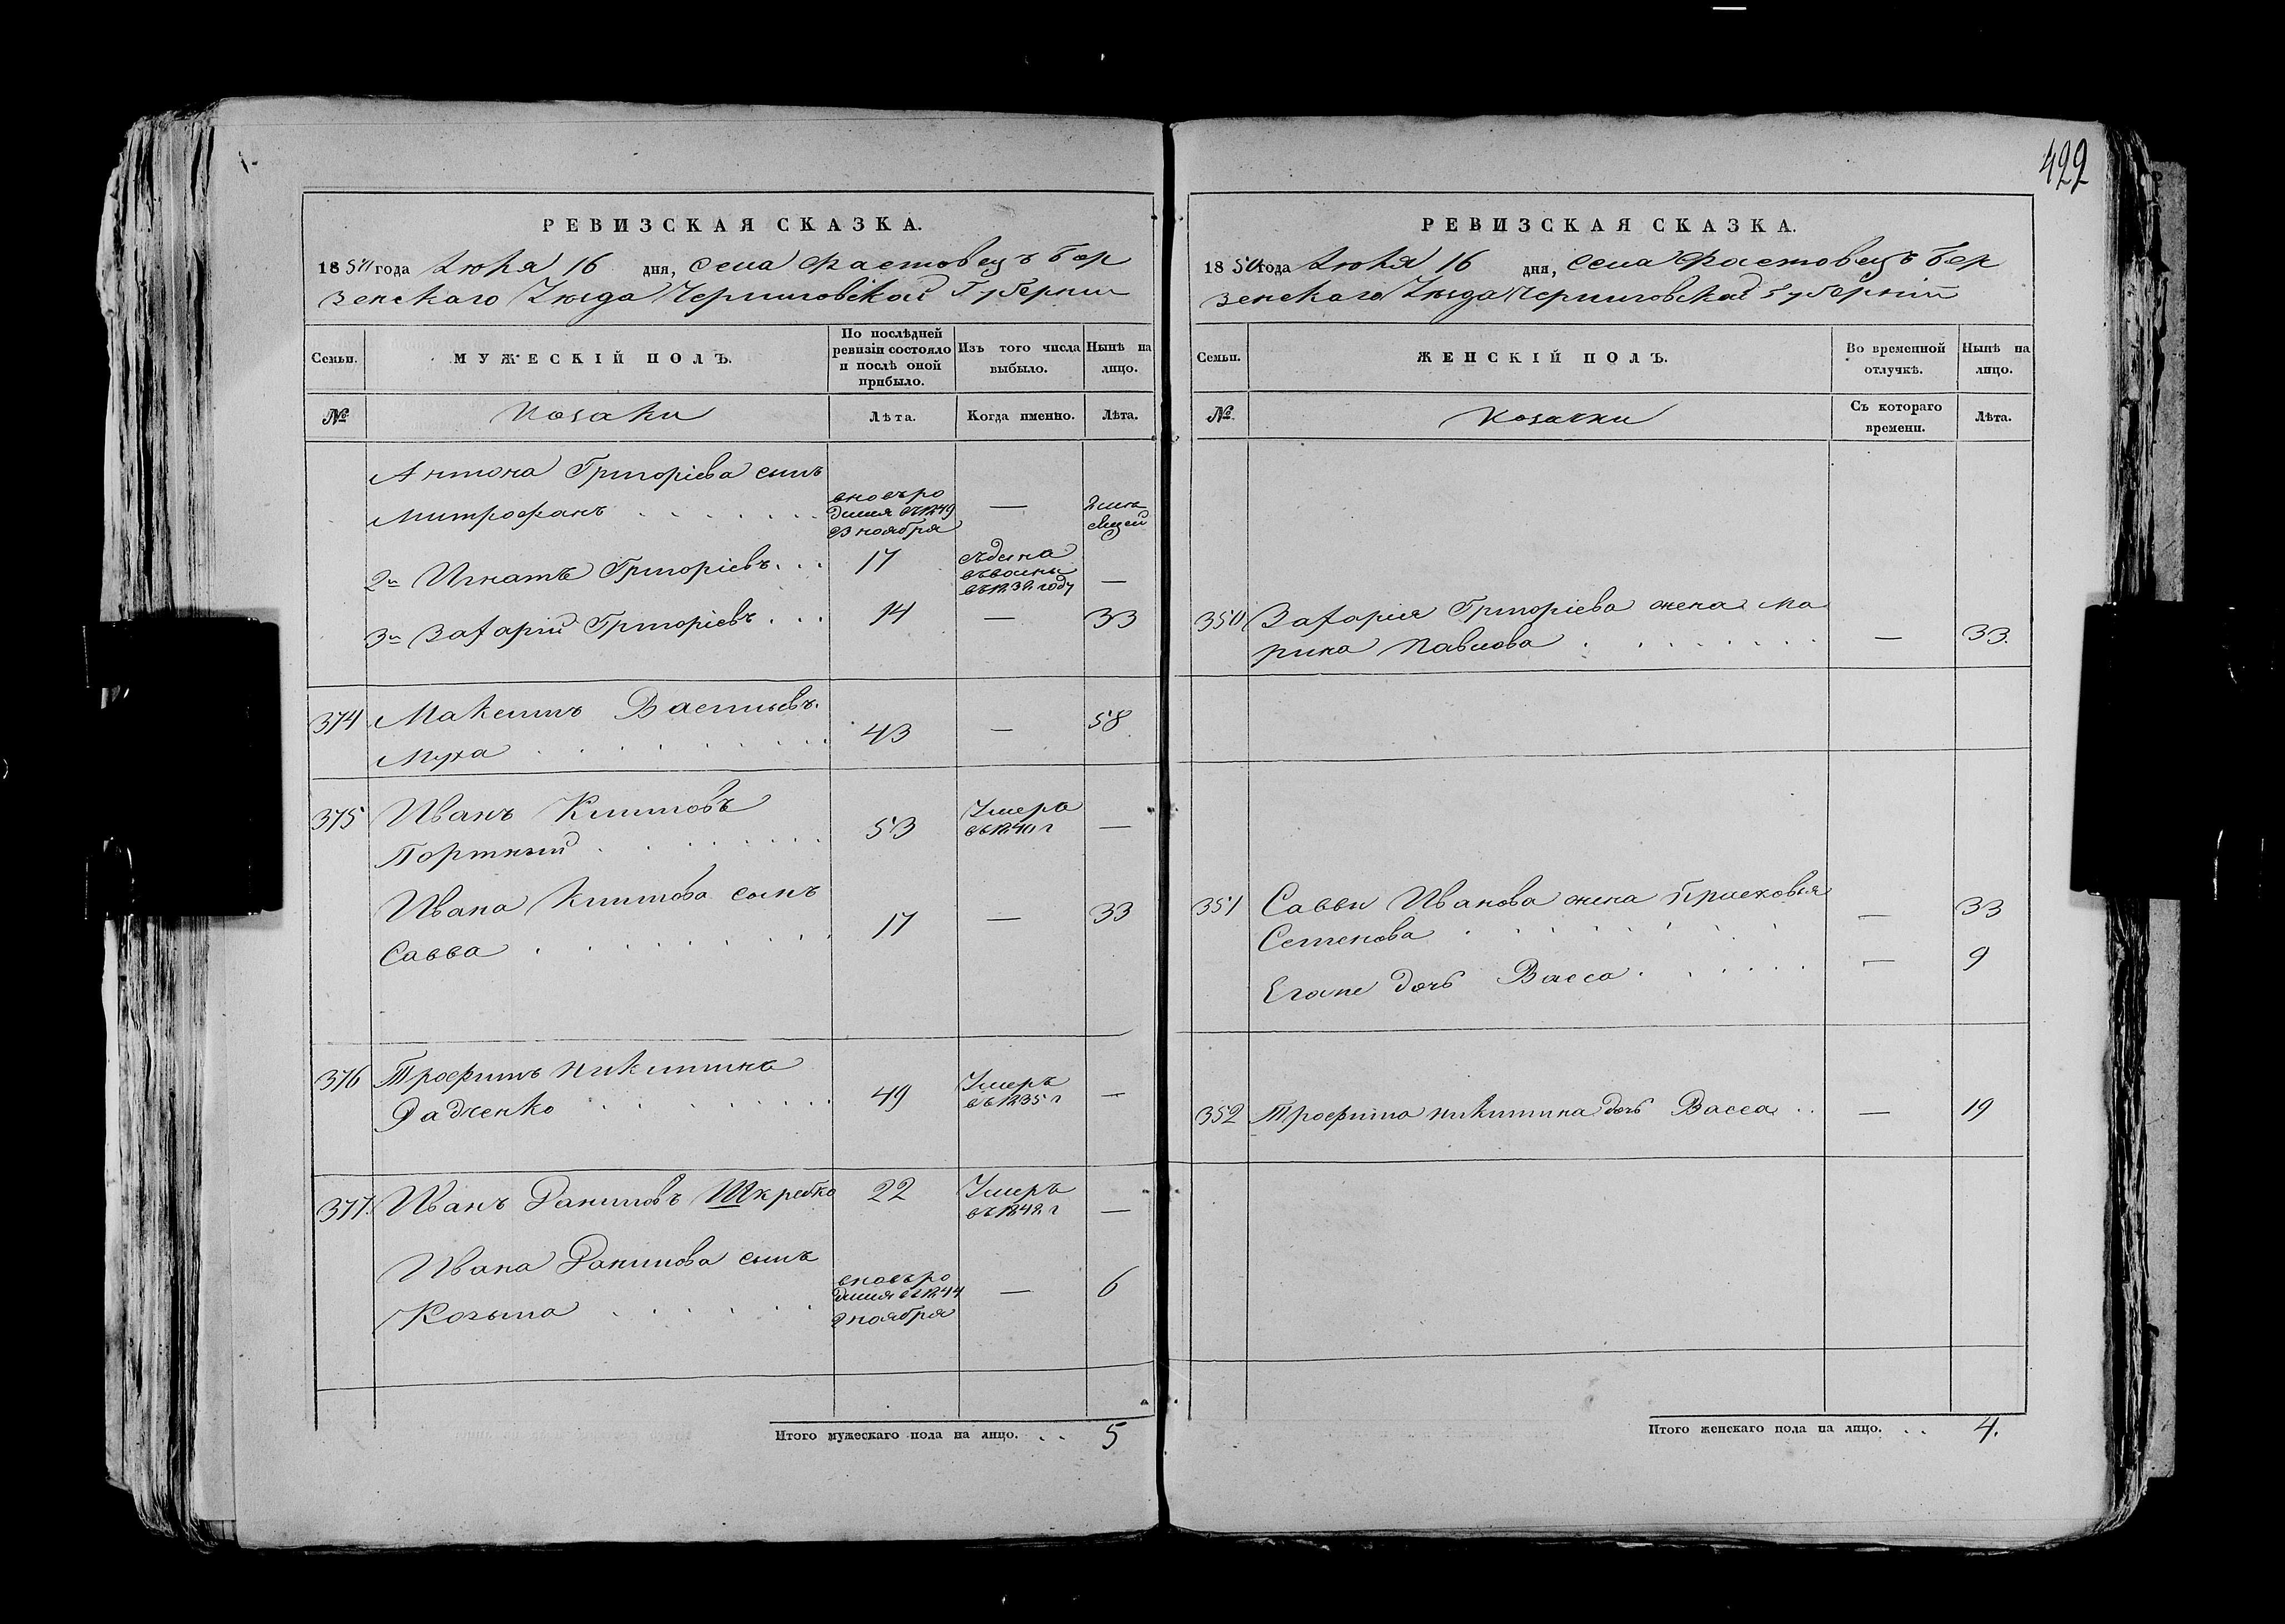 422
РЕВИЗСКАЯ СКАЗКА.
1850 года Июня 16 дня, села Фастовецъ Бор
зенскаго Уезда Черниговской Губернии
Семьи.
МУЖЕСКІЙ ПОЛЪ.
По послѣдней ревизіи состояло и послѣ оной прибыло.
Изъ того числа выбыло.
Нынѣ на лицо.
№
Козаки
Лѣта.
Когда именно.
Лѣта.
Антона Григоріева сынъ
Митрофанъ
вновь ро
дился въ 1849
ноября
—
2й Игнатъ Григоріевъ 17
въ 183 году
—
3й Захарій Григоріевъ 14 — 33
374 Максимъ Васильевъ
Муха 43 — 58
375 Иванъ Климовъ
Портный 53 Умеръ
въ 1840 г —
Ивана Климова сынъ
Савва 17 — 33
376 Трофимъ Никитинъ
Радченко 49 Умеръ
въ 1835 г —
377. Иванъ Даниловъ Шкребко 22 Умеръ
въ 1848 г —
Ивана Данилова сынъ
Козьма
вновь ро
дился въ 1844
ноября
— 6
Итого мужескаго пола на лицо. . . 5
РЕВИЗСКАЯ СКАЗКА.
1850 года Июня 16 дня, села Фастовецъ Бор
зенскаго Уезда Черниговской Губерніи
Семьи.
ЖЕНСКІЙ ПОЛЪ.
Во временной отлучкѣ.
Нынѣ на лицо.
№.
Козачки
Съ котораго времени.
Лѣта.
350 Захарія Григоріева жена Ма
рина Павлова — 33.
351 Саввы Иванова жена Прасковья
Семенова — 33
Егоже дочь Васса — 9
352 Трофима Никитина дочь Васса — 19
Итого женскаго пола на лицо. . . 4.